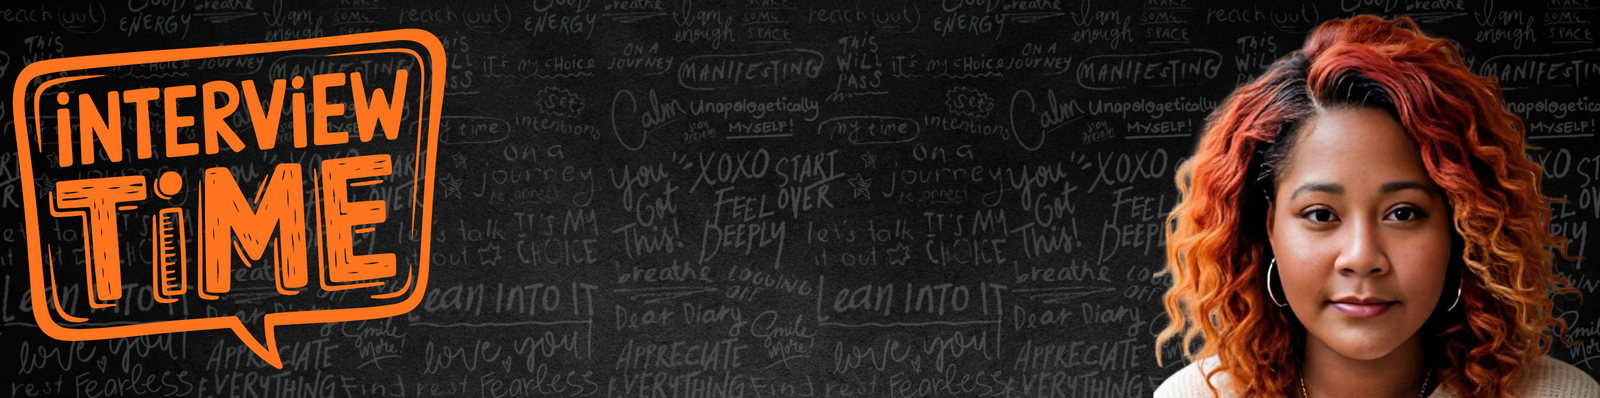 iNTERViEW
TiME
reach (out) GOOD breathe I am MAKE reach (out) GOOD breathe I am MAKE reach (out) GOOD breathe I am MAKE
ENERGY enough SOME ENERGY enough SOME ENERGY enough SOME
SPACE SPACE SPACE
THIS ON A THIS ON A THIS
WILL it's my choice JOURNEY MANIFESTING WILL it's my choice JOURNEY MANIFESTING WILL MANIFESTING
PASS PASS PASS
Set Calm Unapologetically Set Calm Unapologetically Unapologetically
my time intentions STAY MYSELF! my time intentions STAY MYSELF! MYSELF!
on a You XOXO START on a You XOXO START
journey Got FEEL OVER journey Got FEEL OVER
let's talk IT'S MY This! DEEPLY let's talk IT'S MY This! DEEPLY
it out CHOICE it out CHOICE
breathe LOGGING breathe LOGGING
Lean INTO IT OFF Lean INTO IT OFF
Dear Diary Smile Dear Diary Smile
love you! APPRECIATE more! love you! APPRECIATE more! love you! APPRECIATE
rest Fearless EVERYTHING Find rest Fearless EVERYTHING Find rest Fearless EVERYTHING